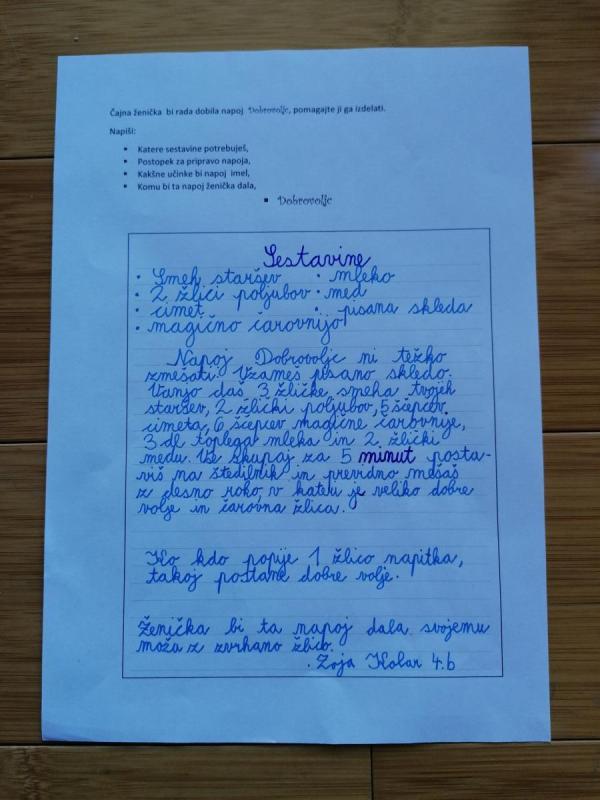 Čajna ženička bi rada dobila napoj Dobrovoljc, pomagajte ji ga izdelati.
Napiši:
• Katere sestavine potrebuješ,
• Postopek za pripravo napoja,
• Kakšne učinke bi napoj imel,
• Komu bi ta napoj ženička dala,
▪ Dobrovoljc
Sestavine
• Smeh staršev • mleko
• 2 žlici poljubov • med
• cimet • pisana skleda
• magično čarovnijo
Napoj Dobrovoljc ni težko
zmešati. Vzameš pisano skledo.
Vanjo daš 3 žličke smeha tvojeh
staršev, 2 žlički poljubov, 5 ščepcev
cimeta, 6 ščepcev magične čarovnije,
3 dl toplega mleka in 2 žlički
medu. Vse skupaj za 5 minut posta-
viš na štedilnik in previdno mešaš
z desno roko, v kateri je veliko dobre
volje in čarovna žlica.
Ko kdo popije 1 žlico napitka,
takoj postane dobre volje.
Ženička bi ta napoj dala svojemu
možu z zvrhano žlico.
Zoja Kolar 4.b